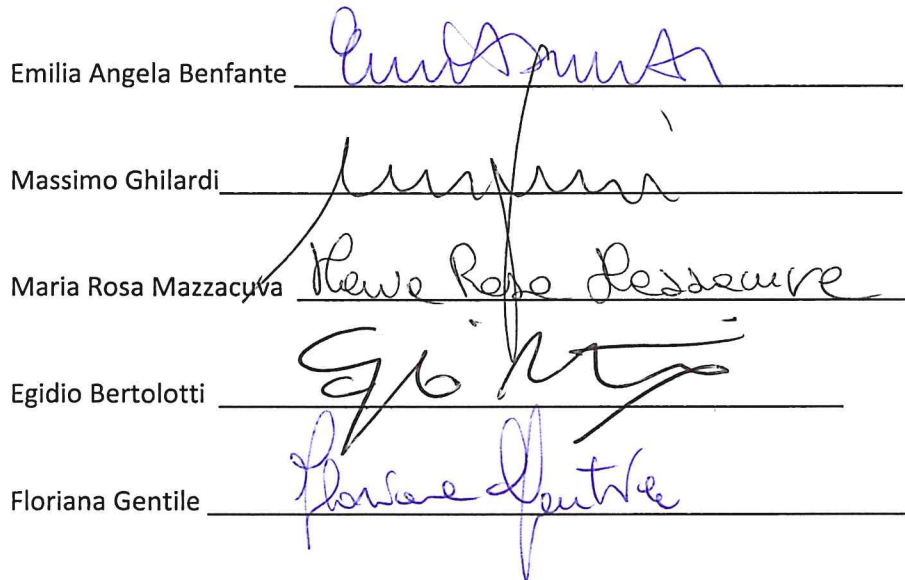 Emilia Angela Benfante
Massimo Ghilardi
Maria Rosa Mazzacuva Maria Rosa Mazzacuva
Egidio Bertolotti
Floriana Gentile Floriana Gentile